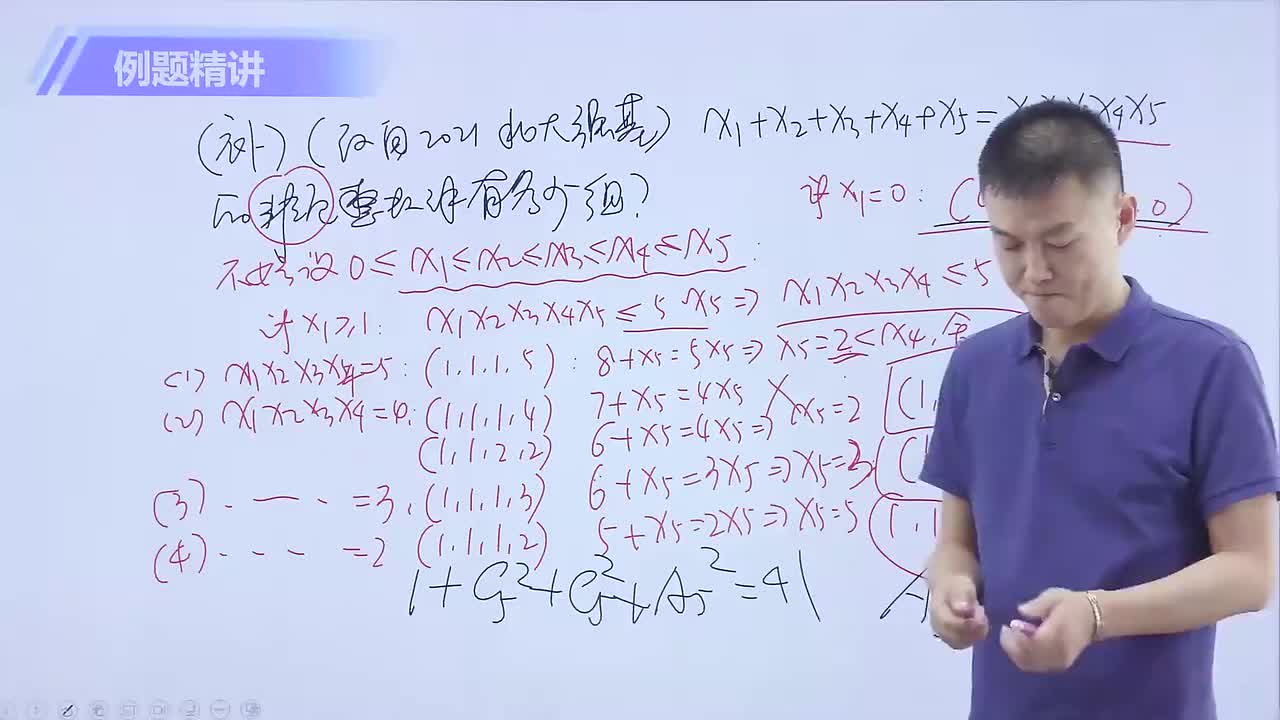 例题精讲
(补) (改自2021北大强基) x₁+x₂+x₃+x₄+x₅= x₄x₅
的非负整数解有多少组?
若x₁=0: ( 0)
不妨设 0≤x₁≤x₂≤x₃≤x₄≤x₅:
若x₁≥1: x₁x₂x₃x₄x₅≤5x₅⇒ x₁x₂x₃x₄≤5
(1) x₁x₂x₃x₄=5: (1,1,1,5): 8+x₅=5x₅⇒ x₅=2<x₄,
(2) x₁x₂x₃x₄=4: (1,1,1,4) 7+x₅=4x₅ ✗ (1,
(1,1,2,2) 6+x₅=4x₅⇒ x₅=2 (1
(3) ‧ — ‧ ‧ =3, (1,1,1,3) 6+x₅=3x₅⇒x₅=3,
(4) ‧ ‧ ‧ ‧ =2 (1,1,1,2) 5+x₅=2x₅⇒x₅=5 (1,1
1+C₅²+C₅²+A₅²=41 A